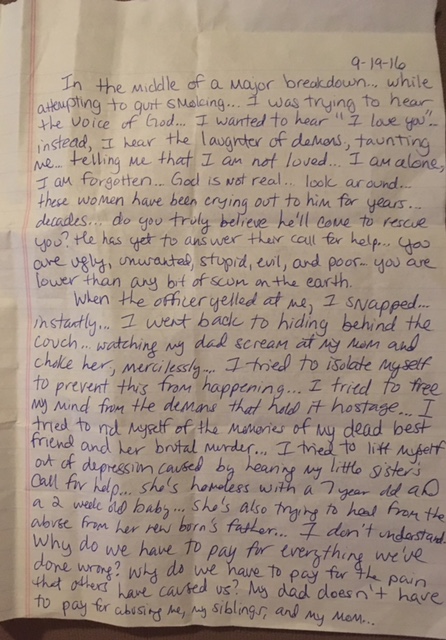 9-19-16
In the middle of a major breakdown... while
attempting to quit smoking... I was trying to hear
the voice of God... I wanted to hear "I love you"...
instead, I hear the laughter of demons, taunting
me... telling me that I am not loved... I am alone,
I am forgotten... God is not real... look around...
these women have been crying out to him for years...
decades... do you truly believe he'll come to rescue
you? He has yet to answer their call for help... you
are ugly, unwanted, stupid, evil, and poor... you are
lower than any bit of scum on the earth.
When the officer yelled at me, I snapped...
instantly... I went back to hiding behind the
couch... watching my dad scream at my mom and
choke her, mercilessly... I tried to isolate myself
to prevent this from happening... I tried to free
my mind from the demons that hold it hostage... I
tried to rid myself of the memories of my dead best
friend and her brutal murder... I tried to lift myself
out of depression caused by hearing my little sister's
call for help... she's homeless with a 7 year old and
a 2 week old baby... she's also trying to heal from the
abuse from her new born's father... I don't understand.
Why do we have to pay for everything we've
done wrong? Why do we have to pay for the pain
that others have caused us? My dad doesn't have
to pay for abusing me, my siblings, and my mom...